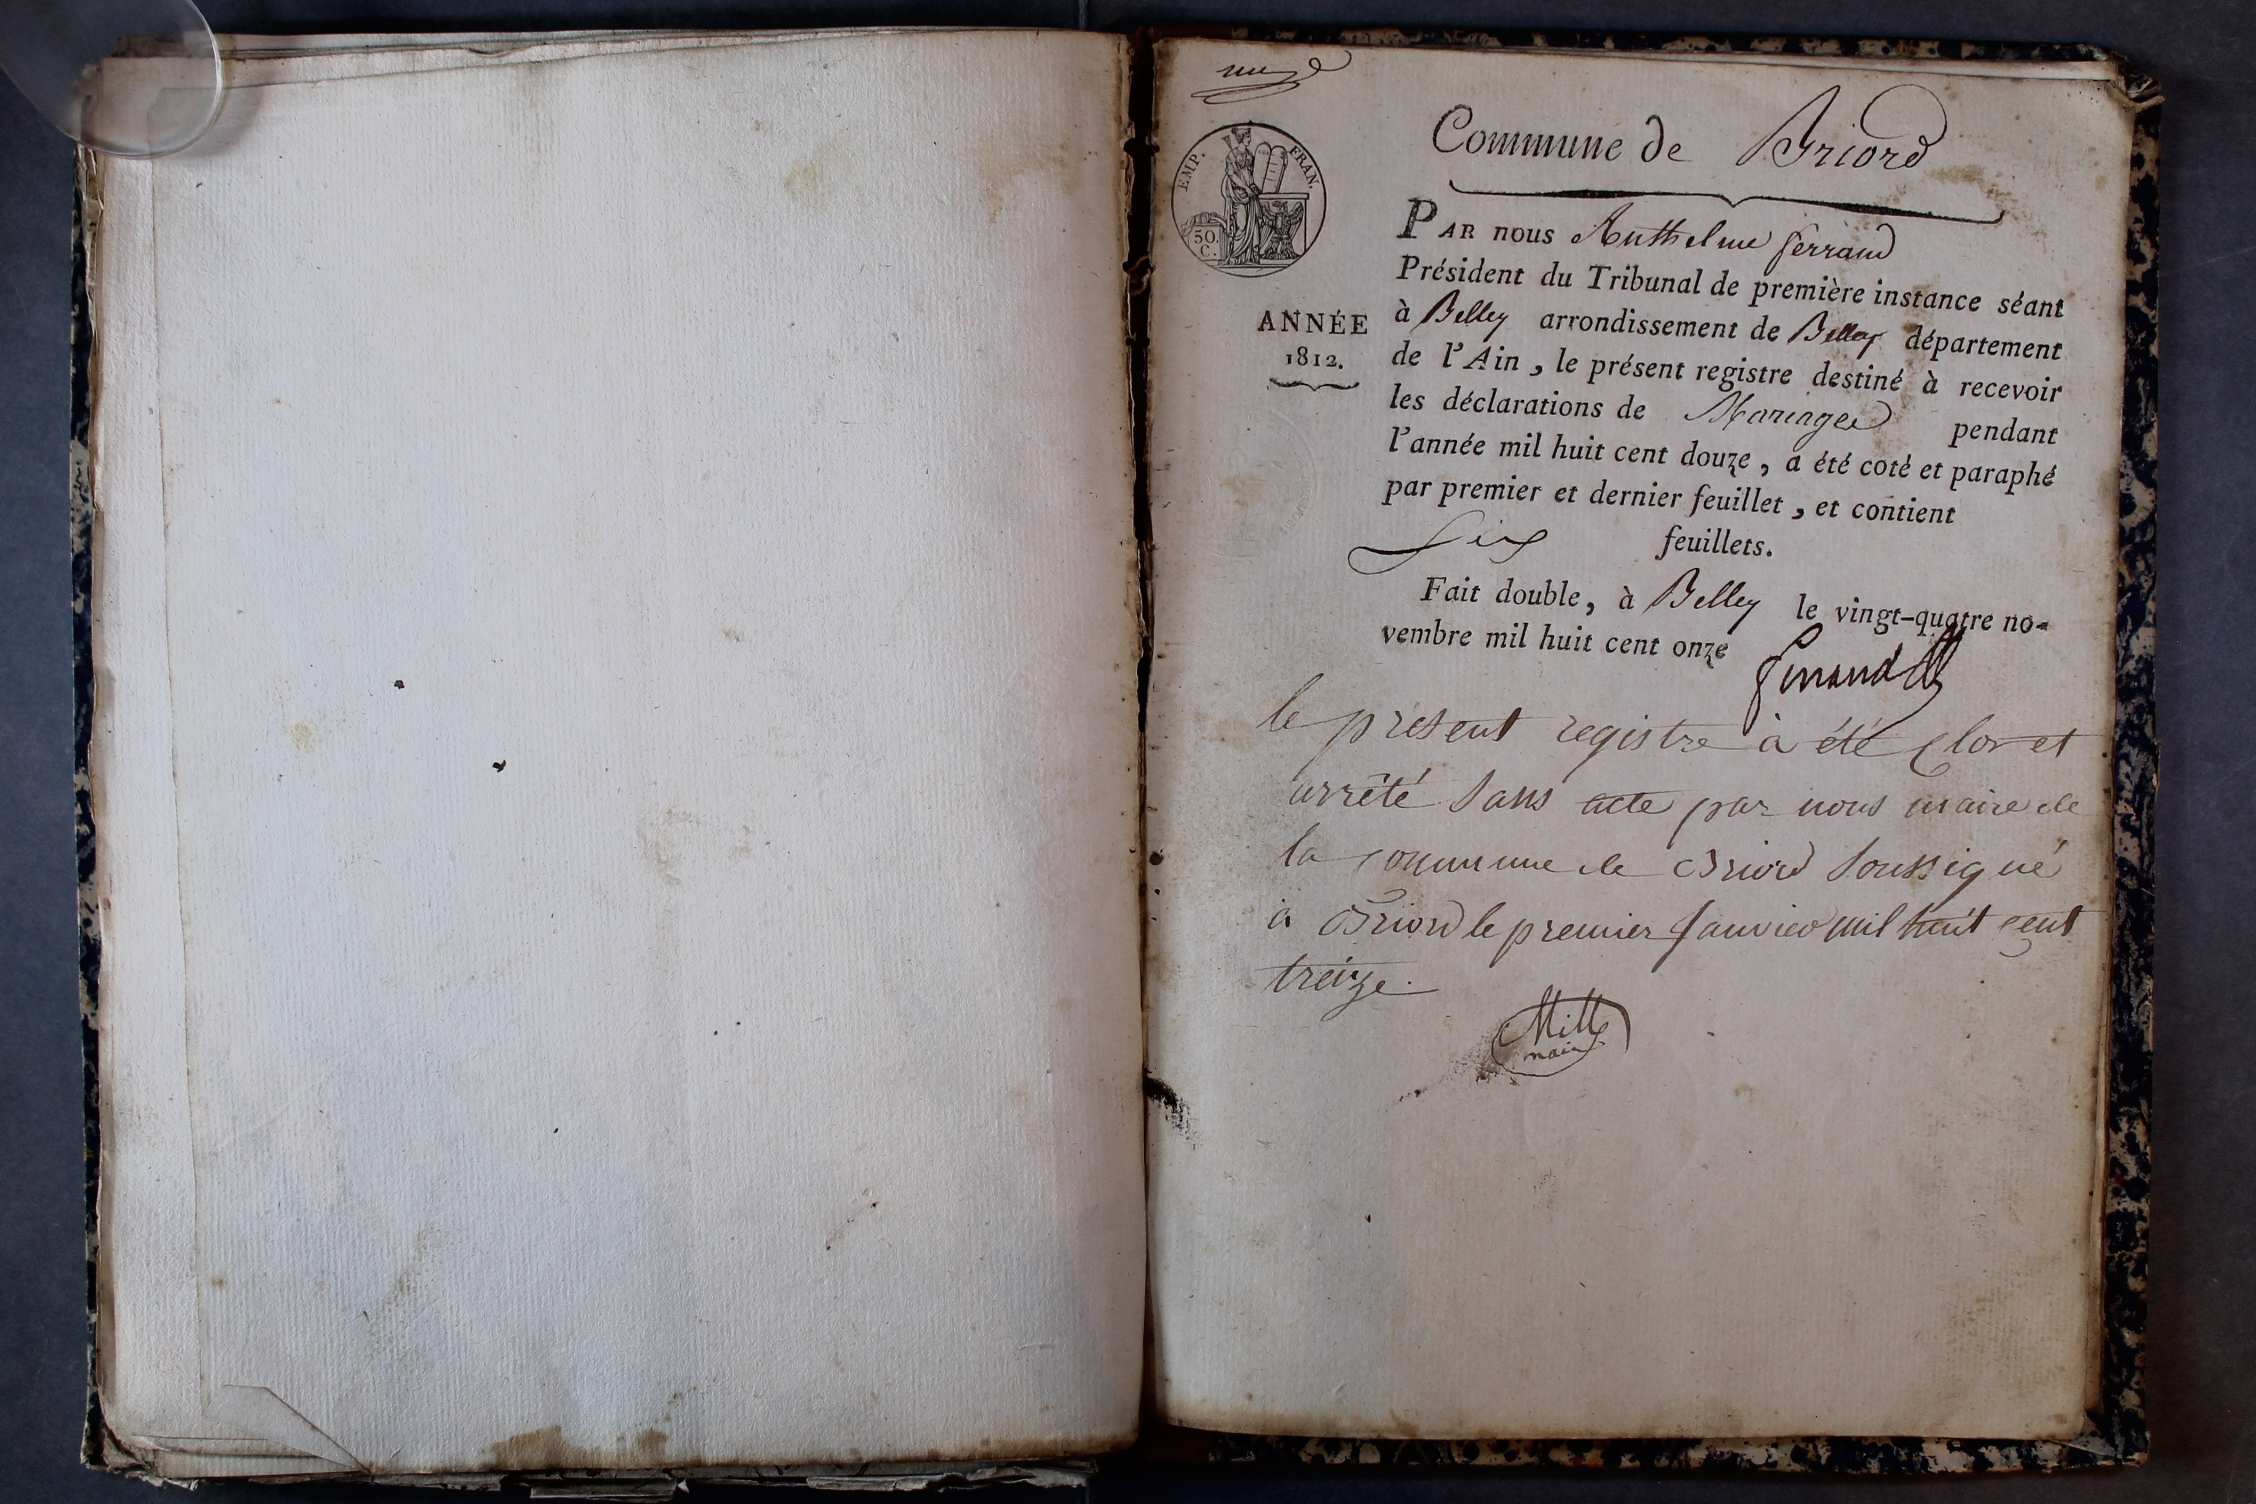 Commune de Briord
EMP. FRAN.
50.
C.
PAR nous Anthelme ferrand
Président du Tribunal de première instance séant
à Belley arrondissement de Belley département
ANNÉE
1812.
de l'Ain, le présent registre destiné à recevoir
les déclarations de Mariages pendant
l'année mil huit cent douze, a été coté et paraphé
par premier et dernier feuillet, et contient
Six feuillets.
Fait double, à Belley le vingt-quatre no-
vembre mil huit cent onze
le present registre à été Clos et
arrêté Sans acte par nous maire de
la commune de Briord Soussigné
à Briord le premier Janvier mil huit cent
treize.
maire